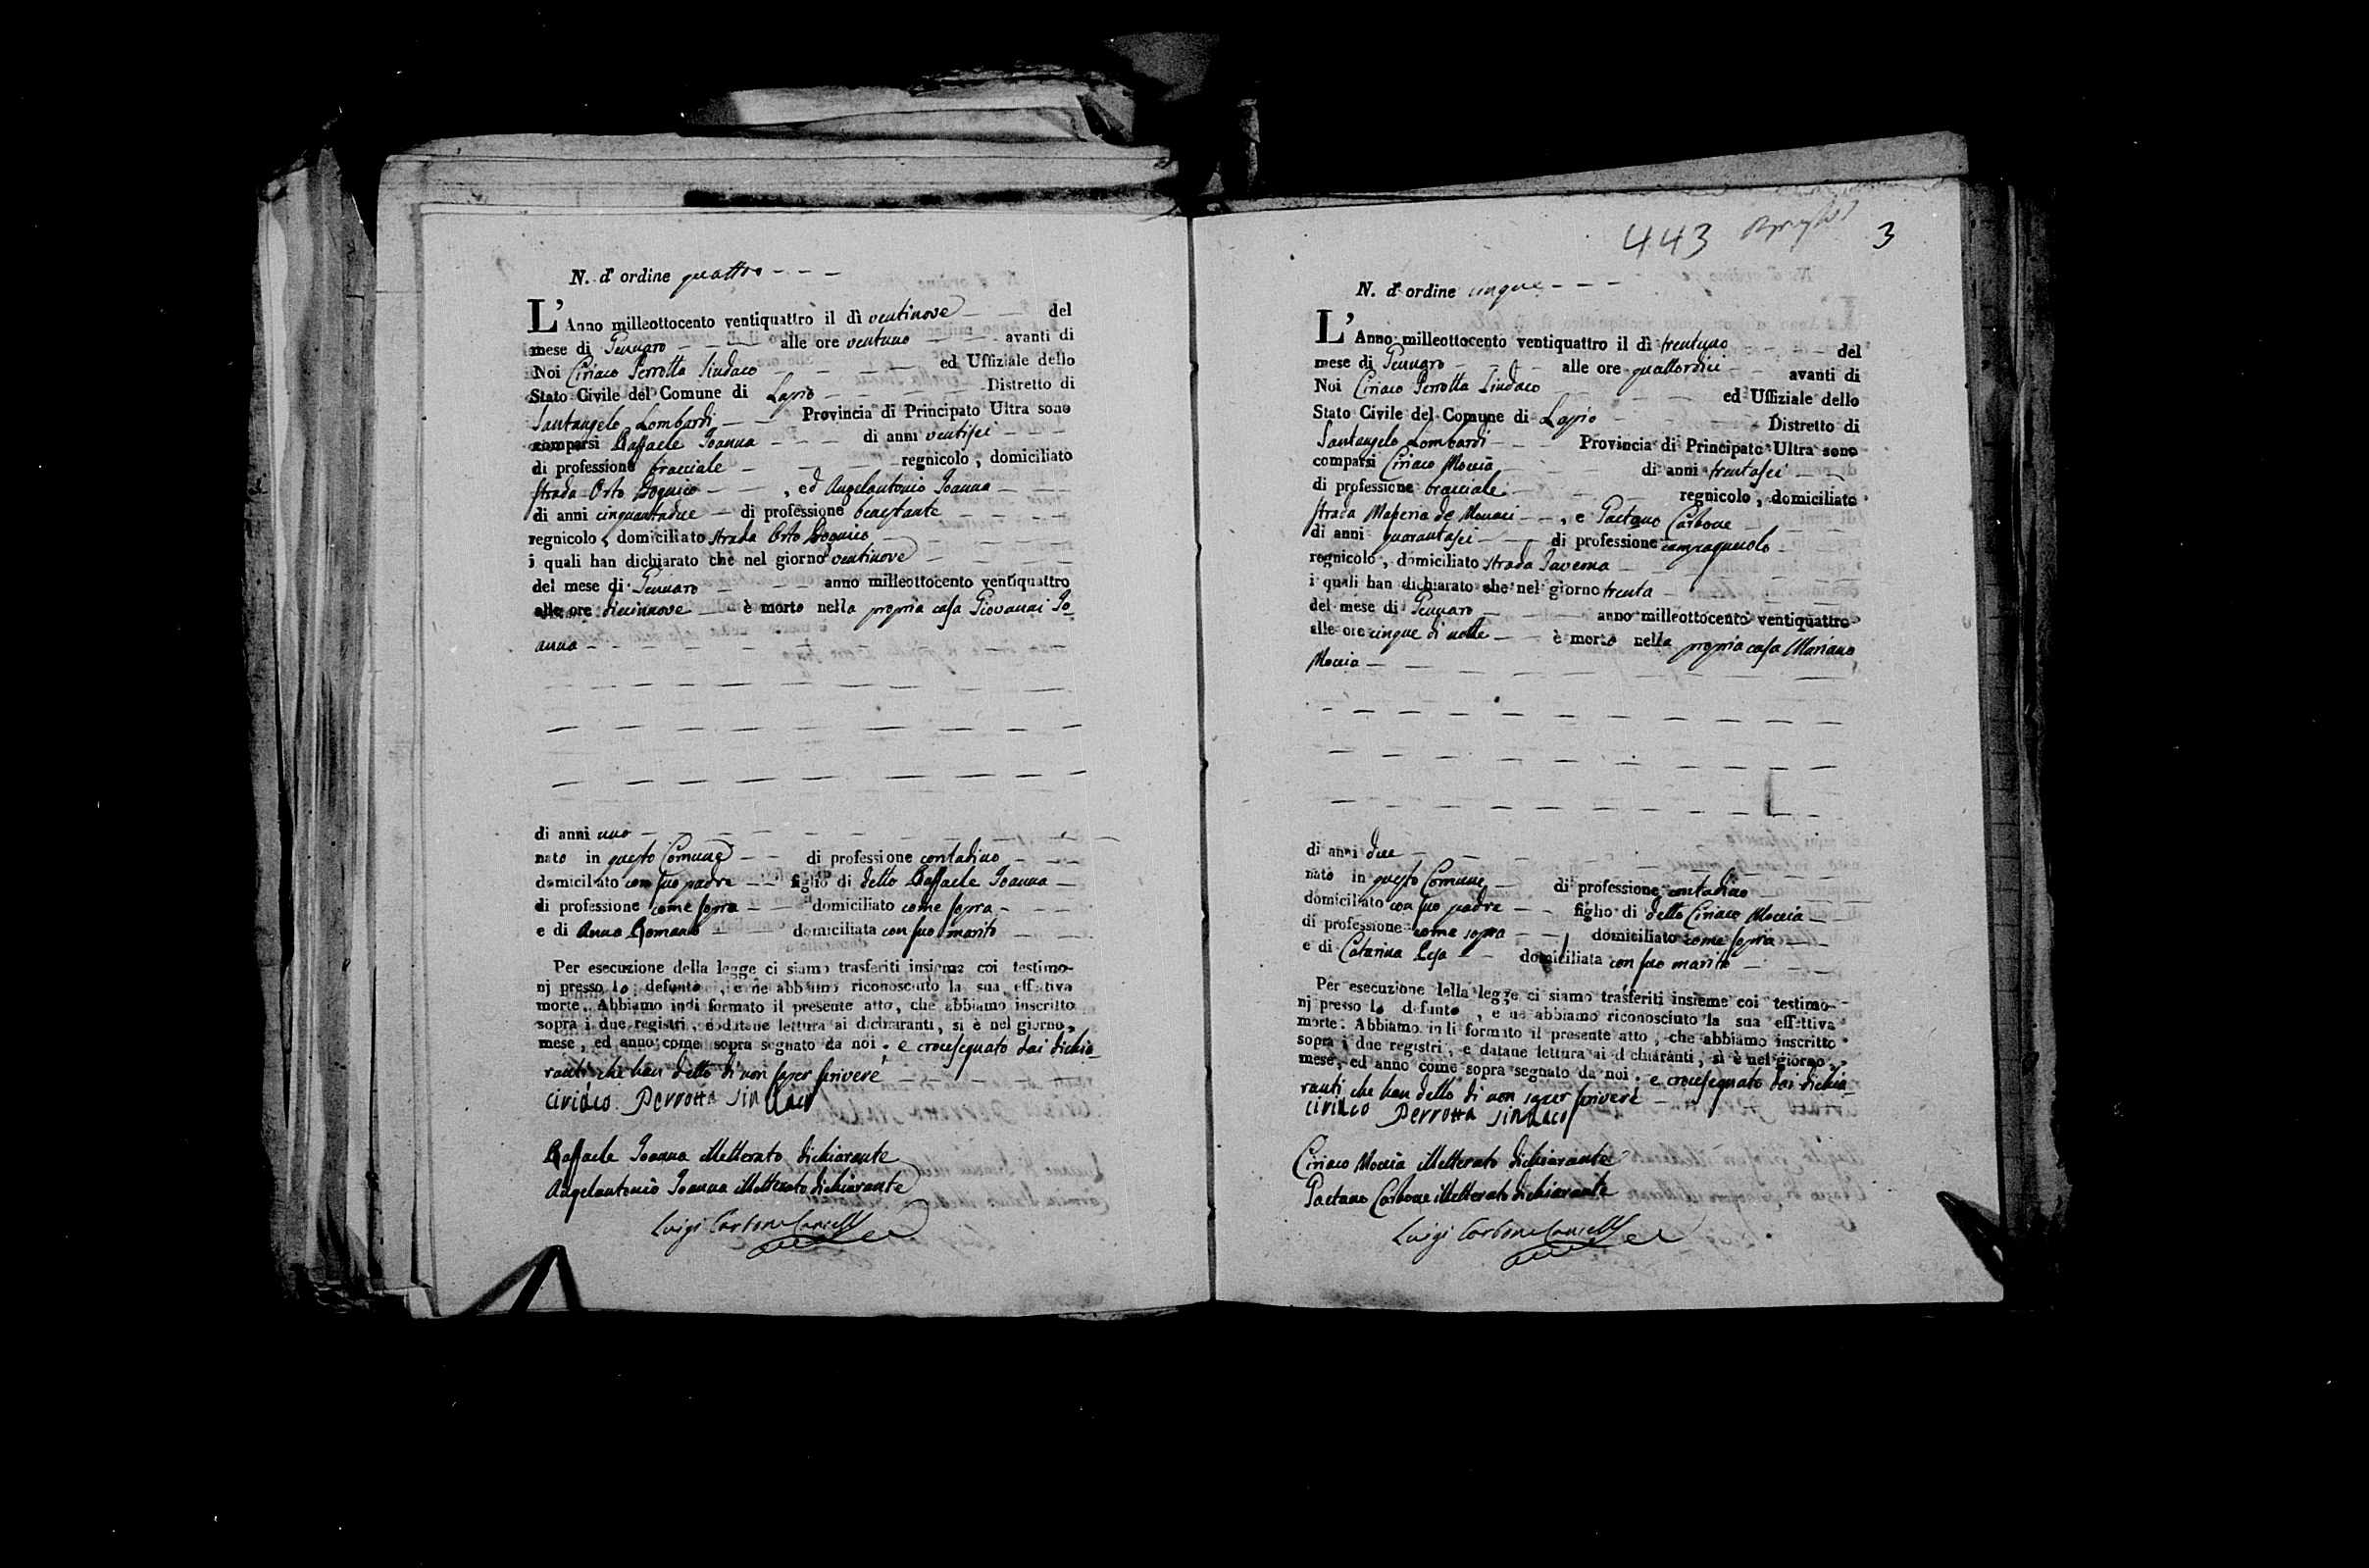 N. d' ordine quattro - - -
L' Anno milleottocento ventiquattro il dì ventinove del
mese di Gennaro alle ore ventuno avanti di
Noi Ciriaco Perrotta Sindaco ed Uffiziale dello
Stato Civile del Comune di Lapio Distretto di
Santangelo Lombardi Provincia di Principato Ultra sono
comparsi Raffaele Joanna di anni ventisei
di professione bracciale regnicolo, domiciliato
strada Orto , ed Angelantonio Joanna
di anni cinquantadue di professione benestante
regnicolo, domiciliato strada Orto
i quali han dichiarato che nel giorno ventinove
del mese di Gennaro anno milleottocento ventiquattro
alle ore diecinnove è morto nella propria casa Giovanni Jo-
anna
di anni uno
nato in questo Comune di professione contadino
domiciliato con suo padre figlio di detto Raffaele Joanna
di professione come sopra domiciliato come sopra
e di Anna Romano domiciliata con suo marito
Per esecuzione della legge ci siamo trasferiti insieme coi testimo-
nj presso lo defunto, e ne abbiamo riconosciuto la sua effettiva
morte. Abbiamo indi formato il presente atto, che abbiamo inscritto
sopra i due registri, e datane lettura ai dichiaranti, si è nel giorno,
mese, ed anno come sopra segnato da noi. e crocesegnato dai dichia-
ranti che han detto di non saper scrivere
ciriaco Perrotta sindaco
Raffaele Joanna illetterato dichiarante
Angelantonio Joanna illetterato dichiarante
Luigi Carbone Cancell
443 3
N. d' ordine cinque - - -
L' Anno milleottocento ventiquattro il dì trentuno del
mese di Gennaro alle ore quattordici avanti di
Noi Ciriaco Perrotta Sindaco ed Uffiziale dello
Stato Civile del Comune di Lapio Distretto di
Santangelo Lombardi Provincia di Principato Ultra sono
comparsi Ciriaco Moccia di anni trentasei
di professione bracciale regnicolo, domiciliato
strada de Monaci , e Gaetano Carbone
di anni quarantasei di professione campagnuolo
regnicolo, domiciliato strada Taverna
i quali han dichiarato che nel giorno trenta
del mese di Gennaro anno milleottocento ventiquattro
alle ore cinque di notte è morto nella propria casa Mariano
Moccia
di anni due
nato in questo Comune di professione contadino
domiciliato con suo padre figlio di detto Ciriaco Moccia
di professione come sopra domiciliato come sopra
e di Catarina domiciliata con suo marito
Per esecuzione della legge ci siamo trasferiti insieme coi testimo-
nj presso lo defunto, e ne abbiamo riconosciuto la sua effettiva
morte. Abbiamo indi formato il presente atto, che abbiamo inscritto
sopra i due registri, e datane lettura ai dichiaranti, si è nel giorno,
mese, ed anno come sopra segnato da noi. e crocesegnato dai dichia-
ranti che han detto di non saper scrivere
ciriaco Perrotta sindaco
Ciriaco Moccia illetterato dichiarante
Gaetano Carbone illetterato dichiarante
Luigi Carbone Cancell